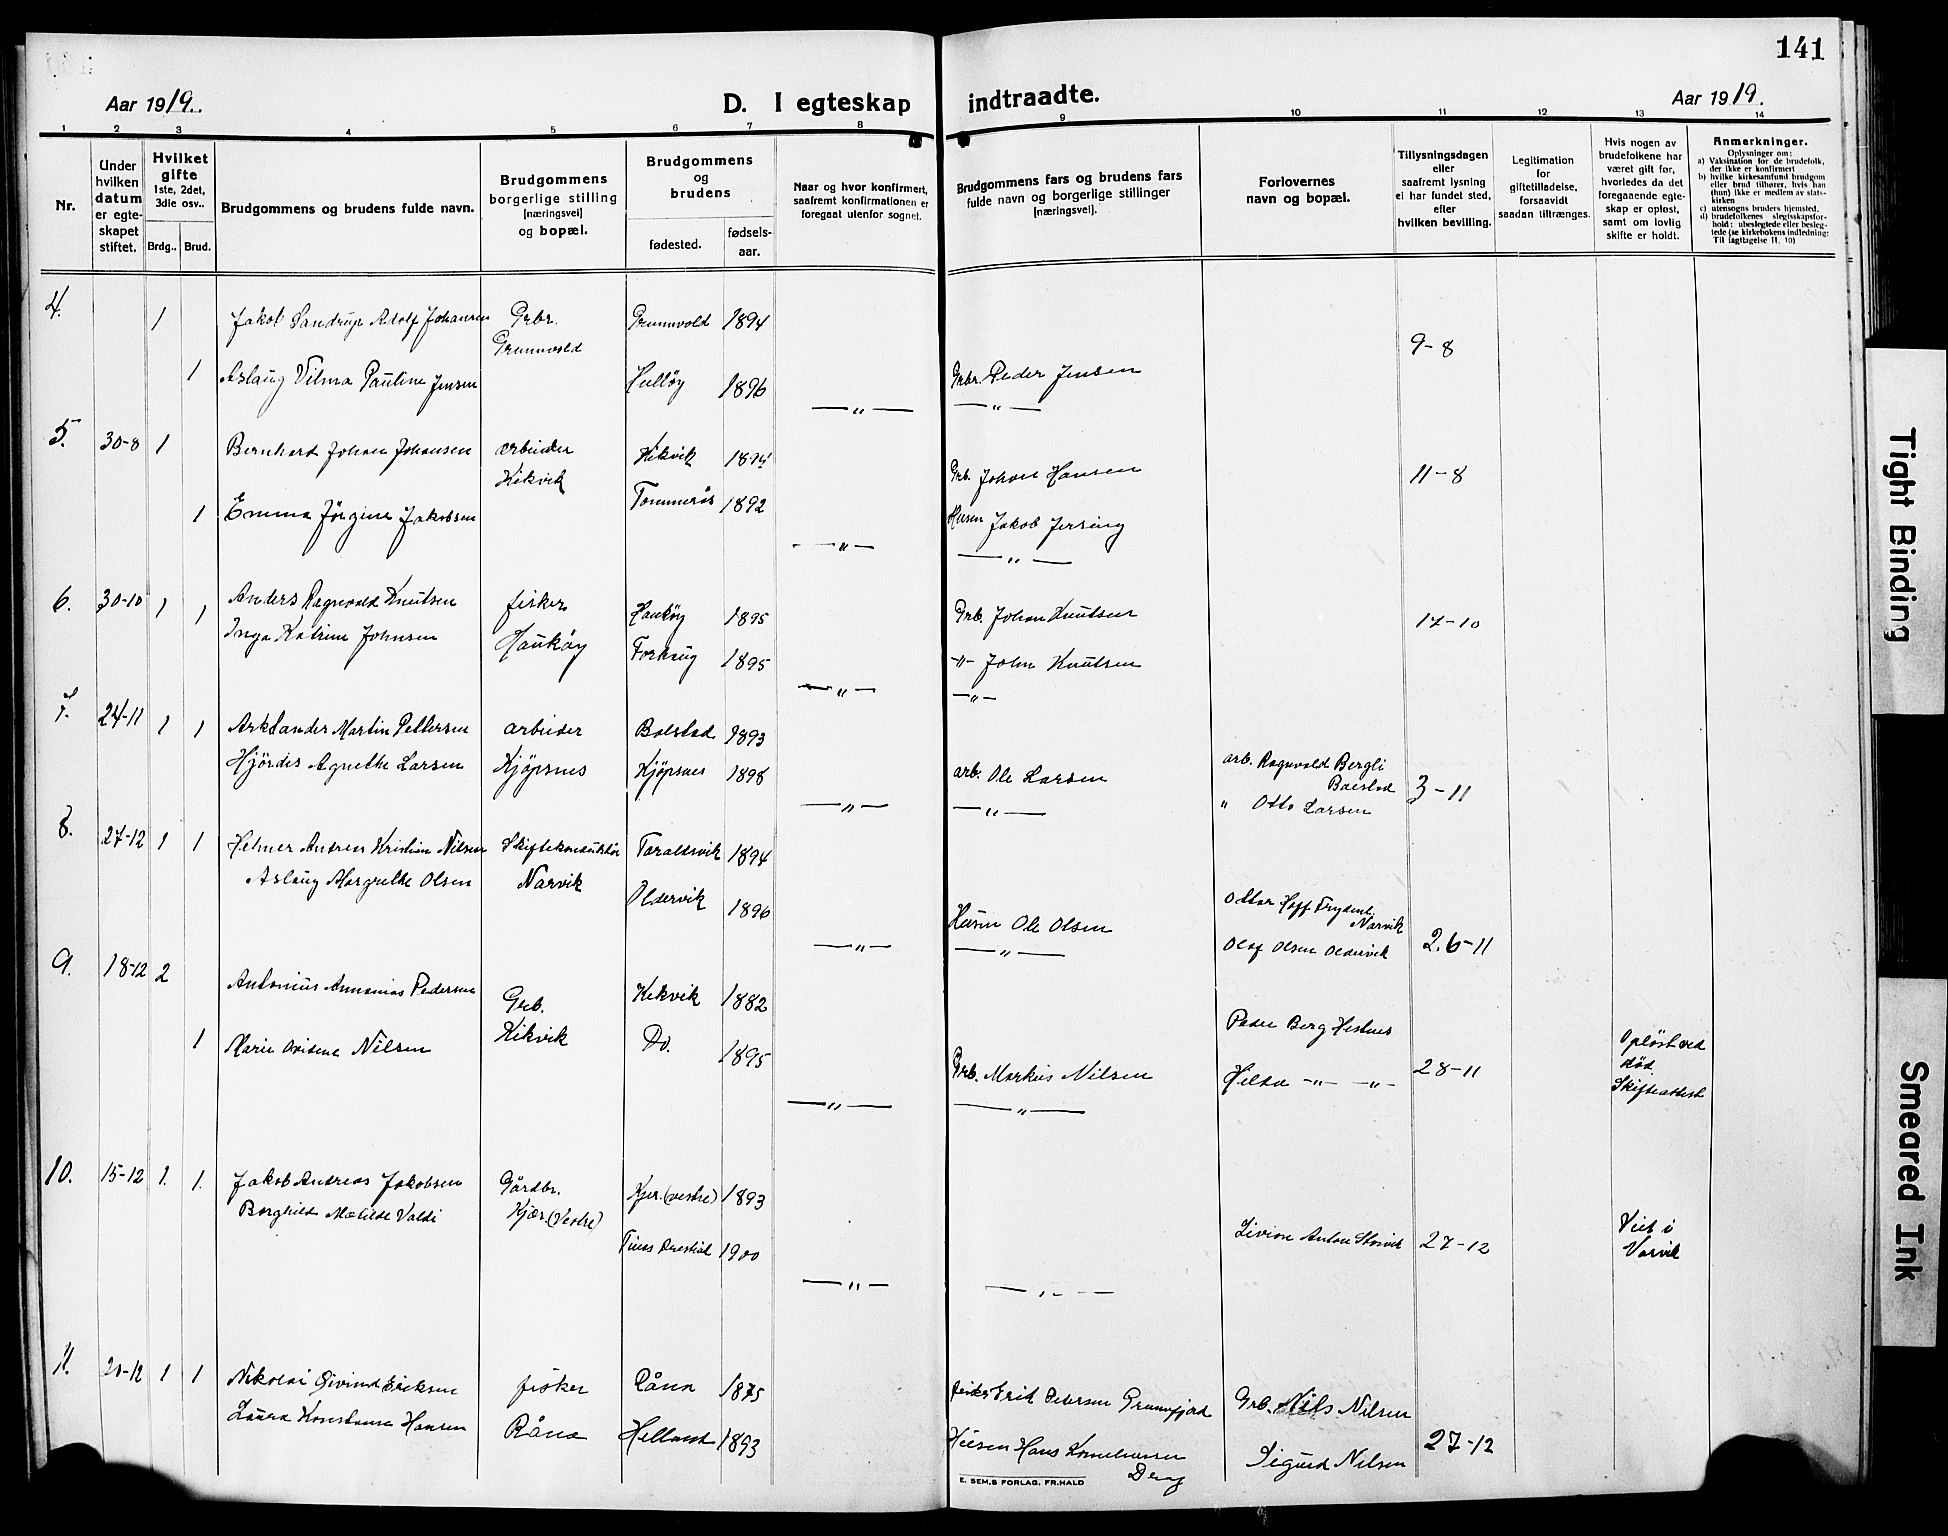 141
Aar 1919.
D. I egteskap
indtraadte.
Aar 1919.
1 2 3 4 5 6 7 8 9 10 11 12 13 14
Nr.
Under
hvilken
datum
er egte-
skapet
stiftet.
Hvilket
gifte
1ste, 2det,
3die osv..
Brdg..
Brud.
Brudgommens og brudens fulde navn.
Brudgommens
borgerlige stilling
[næringsvei]
og bopæl.
Brudgommens
og
brudens
fødested.
fødsels-
aar.
Naar og hvor konfirmert,
saafremt konfirmationen er
foregaat utenfor sognet.
Brudgommens fars og brudens fars
fulde navn og borgerlige stillinger
[næringsvei].
Forlovernes
navn og bopæl.
Tillysningsdagen
eller
saafremt lysning
ei har fundet sted,
efter
hvilken bevilling.
Legitimation
for
giftetilladelse,
forsaavidt
saadan tiltrænges.
Hvis nogen av
brudefolkene har
været gift før,
hvorledes da det
foregaaende egte-
skap er opløst,
samt om lovlig
skifte er holdt.
Anmerkninger.
Oplysninger om:
a) Vaksination for de brudefolk,
der ikke er konfirmert
b) hvilke kirkesamfund brudgom
eller brud tilhører, hvis han
(hun) ikke er medlem av stats-
kirken
c) utensogns bruders hjemsted.
d) brudefolkenes slegtsskapsfor-
hold: ubeslegtede eller besleg-
tede (se kirkebokens indledning:
Til iagttagelse II, 10)
4. 1 Jakob Sandrup Adolf Johansen Grbr. 1894
9-8
1 Aslaug Vilma Pauline Jensen Hulløy 1896 Grbr. Peder Jensen
— " — — " —
5. 30-8 1 Bernhard Johan Johansen arbeider Kikvik 1894 Grb. Johan Hansen 11-8
Kikvik
1 Emma Jørgine Jakobsen Tommerås 1892 Jakob
— " — — " —
6. 30-10 1 1 Anders Ragnvald Knutsen fisker Haukøy 1895 Grb. Johan Knutsen 17-10
Inga Katrine Johnsen Haukøy 1895 -"- John Knutsen
— " — — " —
7. 24-11 1 1 Arktander Martin Pettersen arbeider Bolstad 1893
Hjørdis Agnethe Larsen Kjøpsnes Kjøpsnes 1898 arb. Ole Larsen arb. Ragnvald Bergli
3-11
" Otto Larsen
— " — — " —
8. 27-12 1 1 Helmer Andreas Kristian Nilsen Skiftekonduktør Taraldsvik 1894
Aslaug Margrethe Olsen Narvik Oldervik 1896 Ole Olsen
Narvik
Olaf Olsen Oldervik 26-11
— " — — " —
9. 18-12 2 Antonius Annanias Pedersen Grb. Kikvik 1882
Kikvik
Peder Berg
1 Marie Nilsen Do. 1895 Grb. Markus Nilsen Hilda -"- -"- 28-11 Opløst ved
død.
Skifteattest
— " — — " —
10. 15-12 1. 1. Jakob Andreas Jakobsen Gårdbr. Kjær (vestre) 1893
Borghild Matilde Valdi Kjær (Vestre)
1900 Anton 27-12 Viet i
Narvik
— " — — " —
11. 1 1 Nikolai Øivind Eriksen fisker Råna 1875 fisker Erik Pedersen Grb. Nils Nilsen
Laura Konstanse Hansen Råna Helland 1893 Hans Sigurd Nilsen 27-12
E. SEM.S FORLAG, FR.HALD
Tight Binding
Smeared Ink